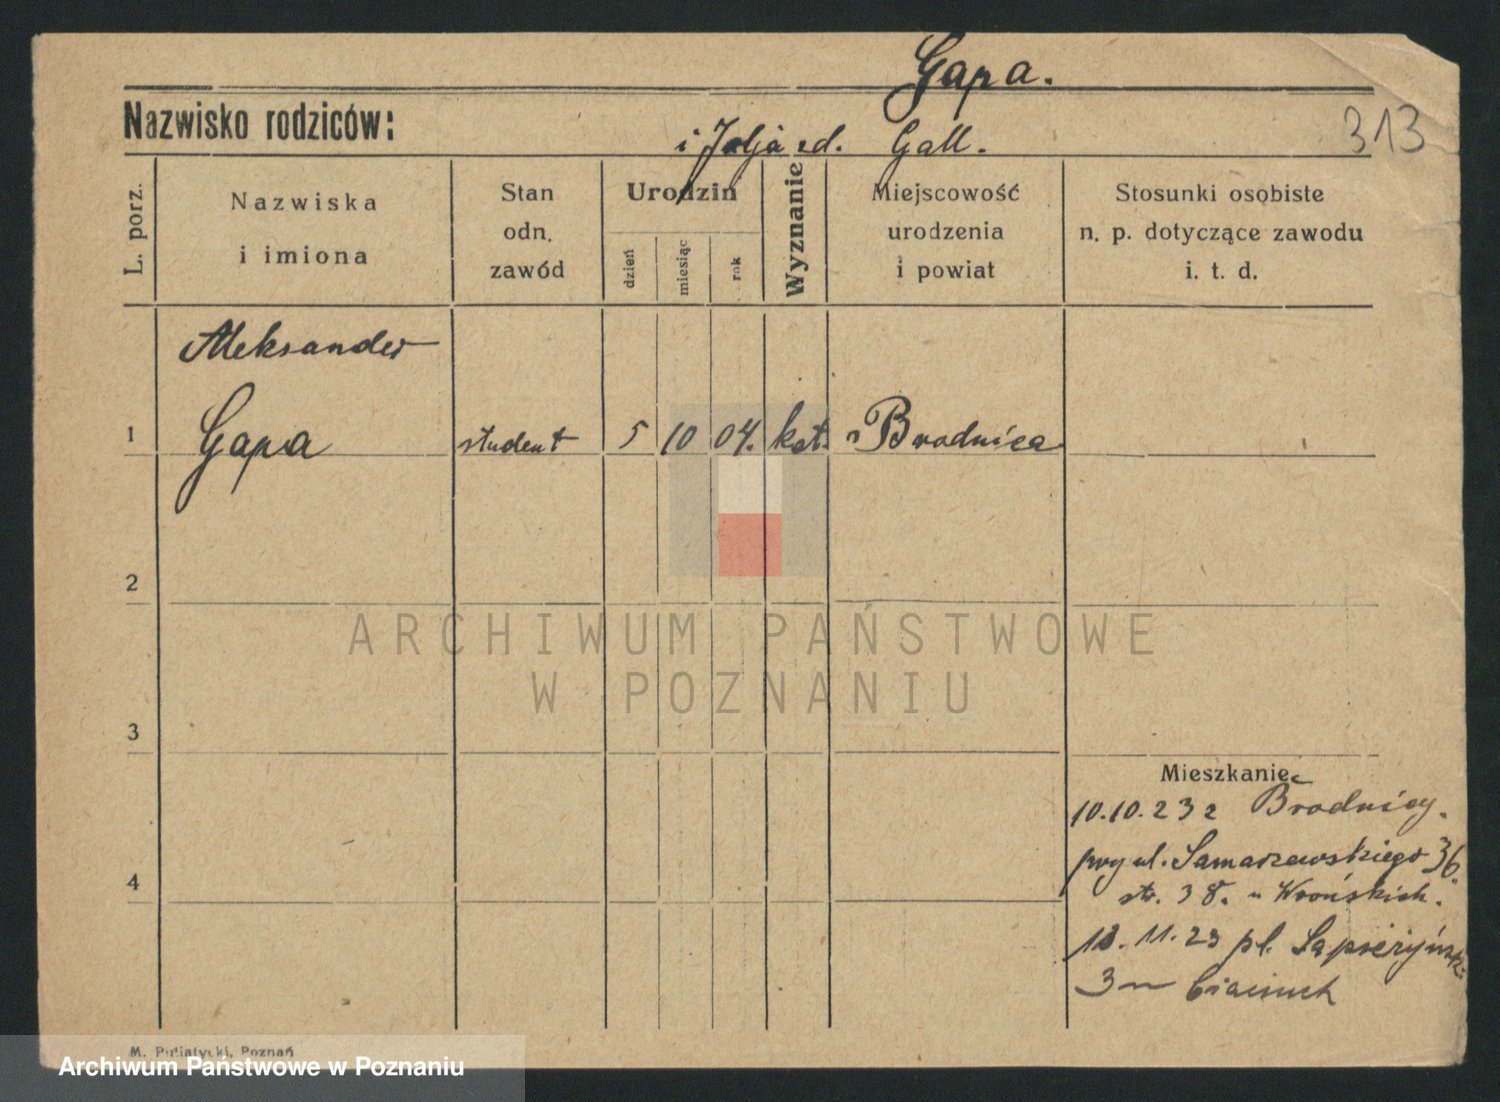 Gapa.
Nazwisko rodziców:
313
i Julja zd. Gall.
L. porz.
Nazwiska
i imiona
Stan
odn.
zawód
Urodzin
dzień
miesiąc
rok
Wyznanie
Miejscowość
urodzenia
i powiat
Stosunki osobiste
n. p. dotyczące zawodu
i. t. d.
Aleksander
1 Gapa student 5 10 04. kat. Brodnica
2
ARCHIWUM PAŃSTWOWE
W POZNANIU
3
Mieszkanie
10.10.23 z Brodnicy.
przy ul. Samarzewskiego 36.
4
str. 38. u Wrońskich.
11.23 pl. Sapieżyńsk.
3
M. Putiatycki, Poznań
Archiwum Państwowe w Poznaniu